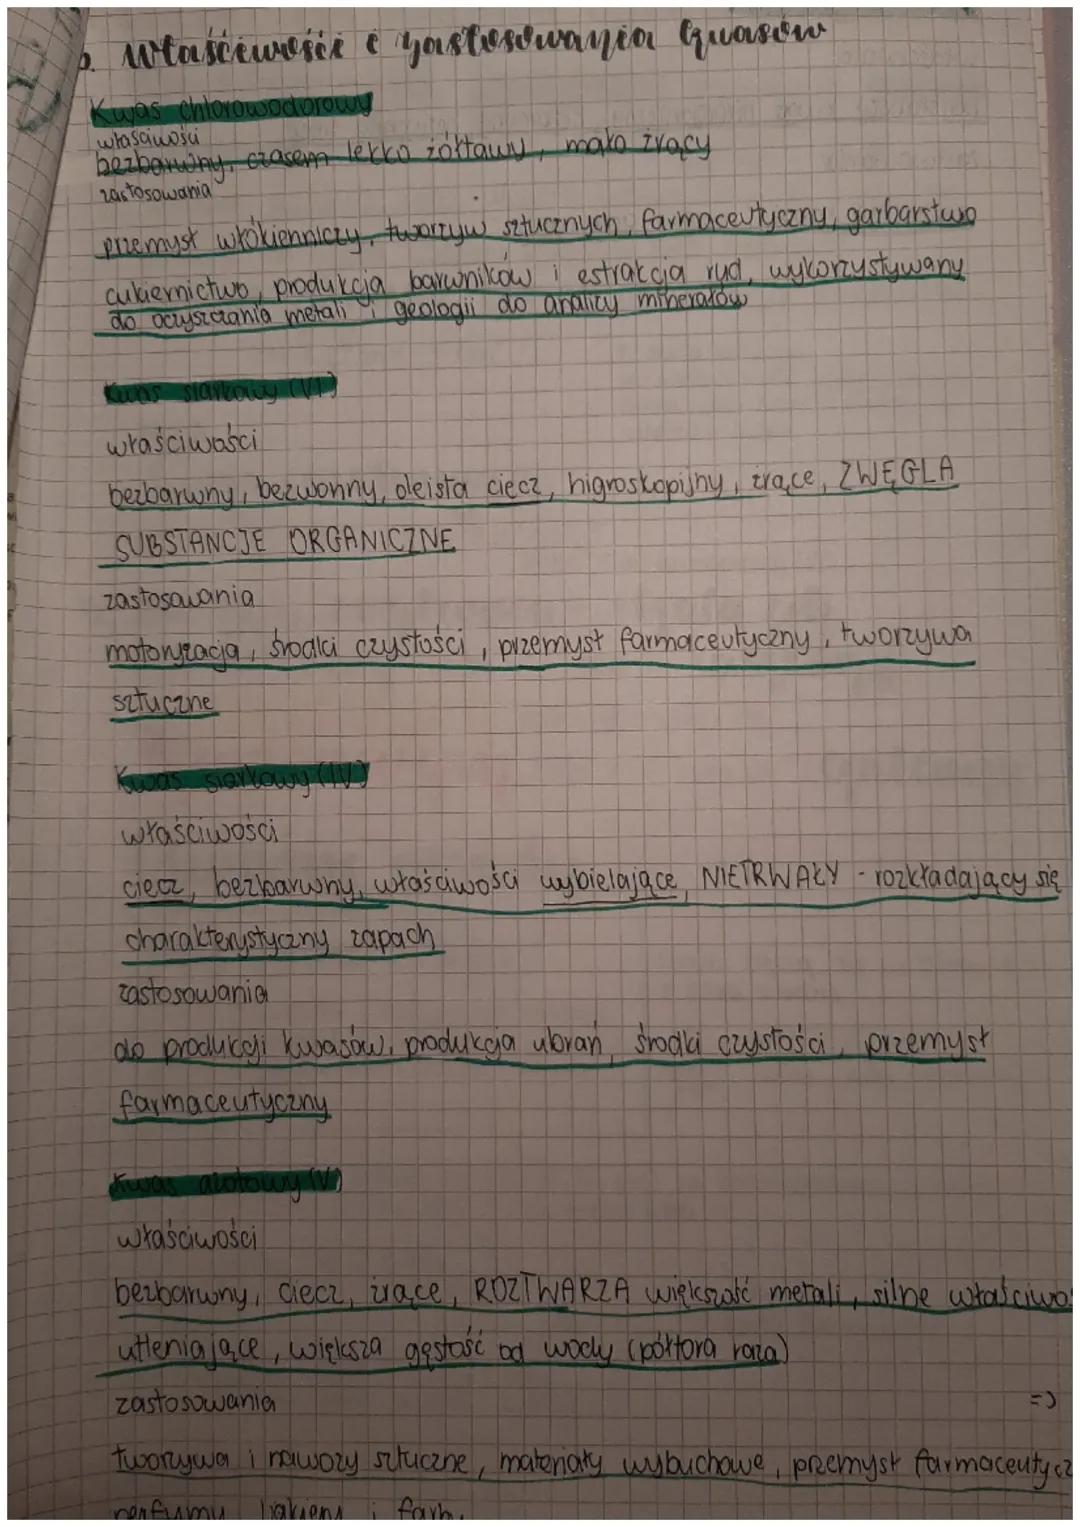 6. Właściwości i zastosowania kwasów
Kwas chlorowodorowy
właściwości
bezbarwny, czasem lekko żółtawy, mało żrący
zastosowania
przemysł włókienniczy, tworzyw sztucznych, farmaceutyczny, garbarstwo
cukiernictwo, produkcja barwników i estrakcja rud, wykorzystywany
do oczyszczania metali i geologii do analizy minerałów
Kwas siarkowy (VI)
właściwości
bezbarwny, bezwonny, oleista ciecz, higroskopijny, żrące, ZWĘGLA
SUBSTANCJE ORGANICZNE
zastosowania
motoryzacja, środki czystości, przemysł farmaceutyczny, tworzywa
sztuczne
Kwas siarkowy (IV)
właściwości
ciecz, bezbarwny, właściwości wybielające, NIETRWAŁY - rozkładający się
charakterystyczny zapach
zastosowania
do produkcji kwasów, produkcja ubrań, środki czystości, przemysł
farmaceutyczny
Kwas azotowy (V)
właściwości
bezbarwny, ciecz, żrące, ROZTWARZA większość metali, silne właściwo
utleniające, większa gęstość od wody (półtora raza)
zastosowania
=>
tworzywa i nawozy sztuczne, materiały wybuchowe, przemysł farmaceutycz
perfumy lakiery i farb